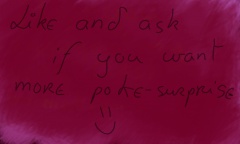 Like and ask
if you want
more poke-surprise
:)